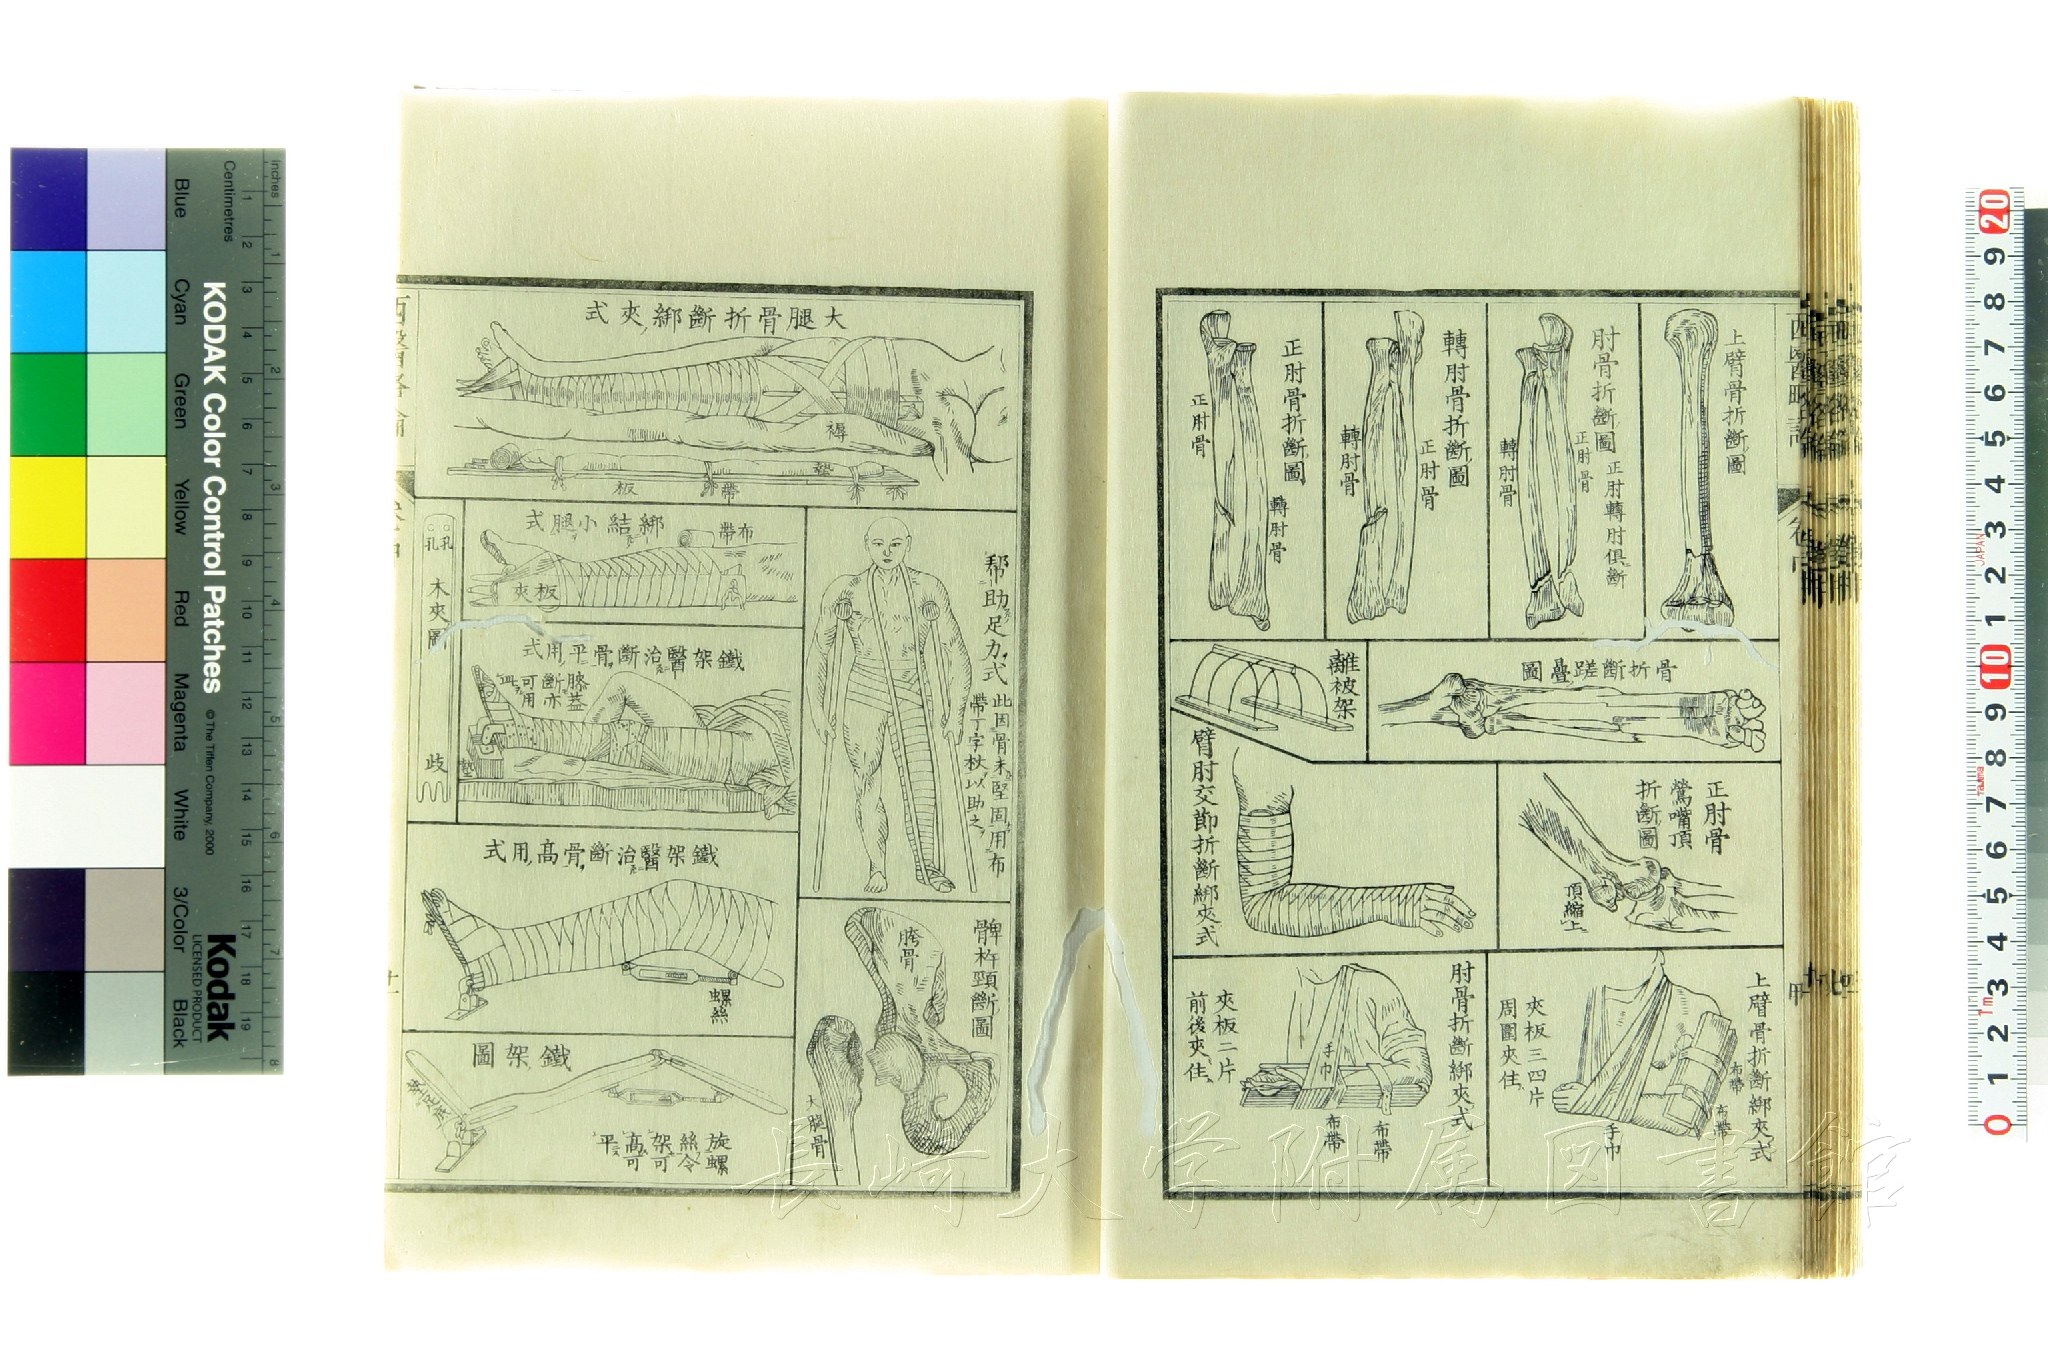 上臂骨折斷圖
肘骨折斷圖
正肘轉肘俱斷
正肘骨
轉肘骨
轉肘骨折斷圖
正肘骨
轉肘骨
正肘骨折斷圖
轉肘骨
正肘骨
骨折斷蹉疊圖
離被架
正肘骨
鶯嘴頂
折斷圖
頂縮上
臂肘交節折斷綁夾式
上臂骨折斷綁夾式
布帶
布帶
手巾
夾板三四片
周圍夾住
肘骨折斷綁夾式
手巾
布帶
布帶
夾板二片
前後夾住
大腿骨折斷綁夾式
褥
墊
帶
板
幫助足力式
此因骨未堅固用布
帶丁字杖以助之
髀杵頸斷圖
胯骨
大腿骨
綁結小腿式
布帶
夾板
鐵架醫治斷骨平用式
膝蓋
斷亦
可用
墊
孔
孔
木夾圖
歧
鐵架醫治斷骨高用式
螺絲
鐵架圖
旋螺
絲令
架可
高可
平
長崎大学附属図書館
KODAK Color Control Patches
© The Tiffen Company, 2000
Kodak
LICENSED PRODUCT
Inches
Centimetres
Blue
Cyan
Green
Yellow
Red
Magenta
White
3/Color
Black
JAPAN